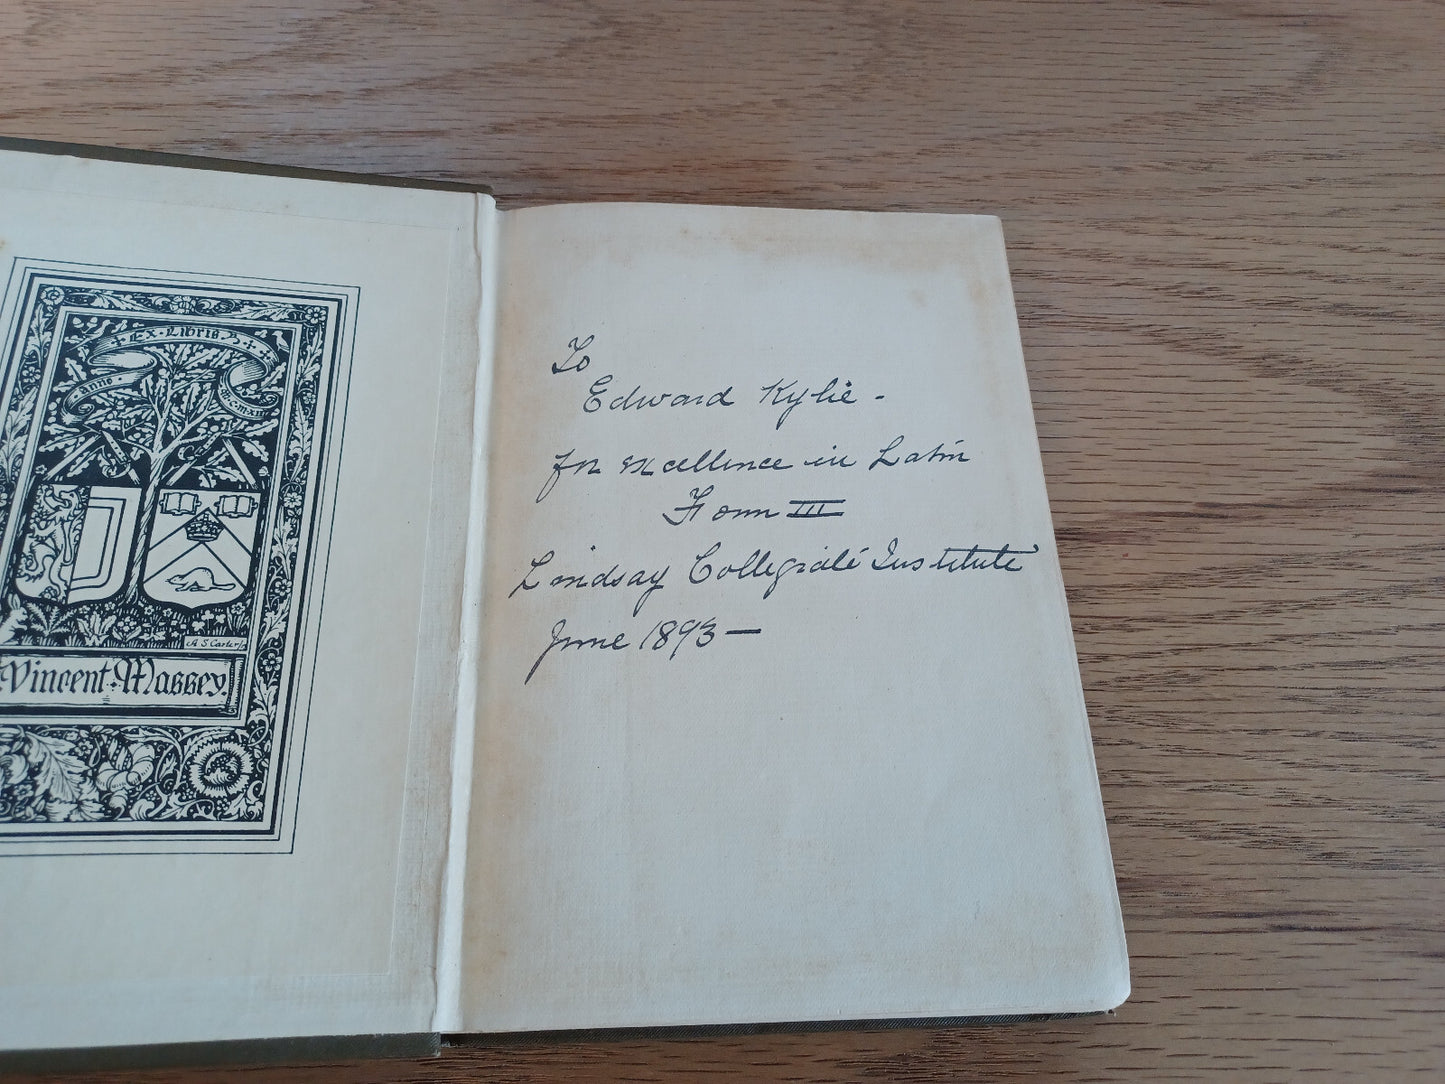 Ex Libris
Anno
A S Carter
Vincent Massey.
To
Edward Kylie -
for excellence in Latin
Form III
Lindsay Collegiate Institute
June 1893 —